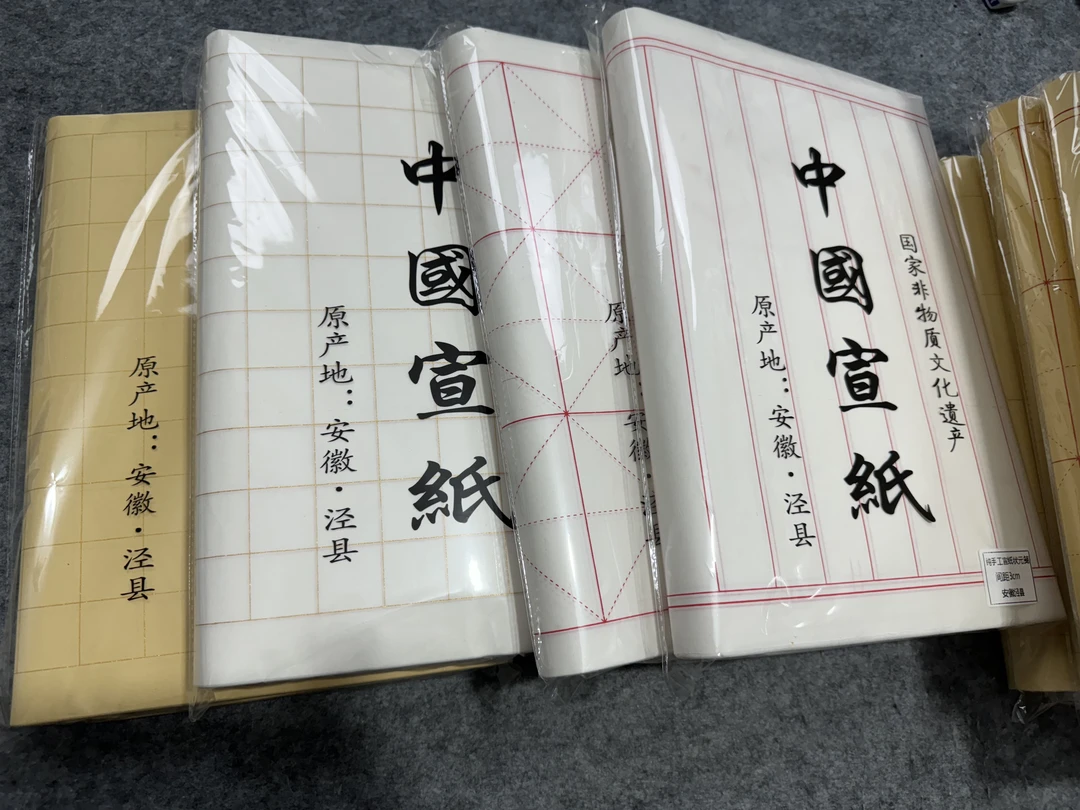 原产地：安徽·泾县
中國宣紙
原产地：安徽·泾县
原产地：安徽·泾
中國宣紙
国家非物质文化遗产
原产地：安徽·泾县
纯手工宣纸状元
间距3cm
安徽泾县